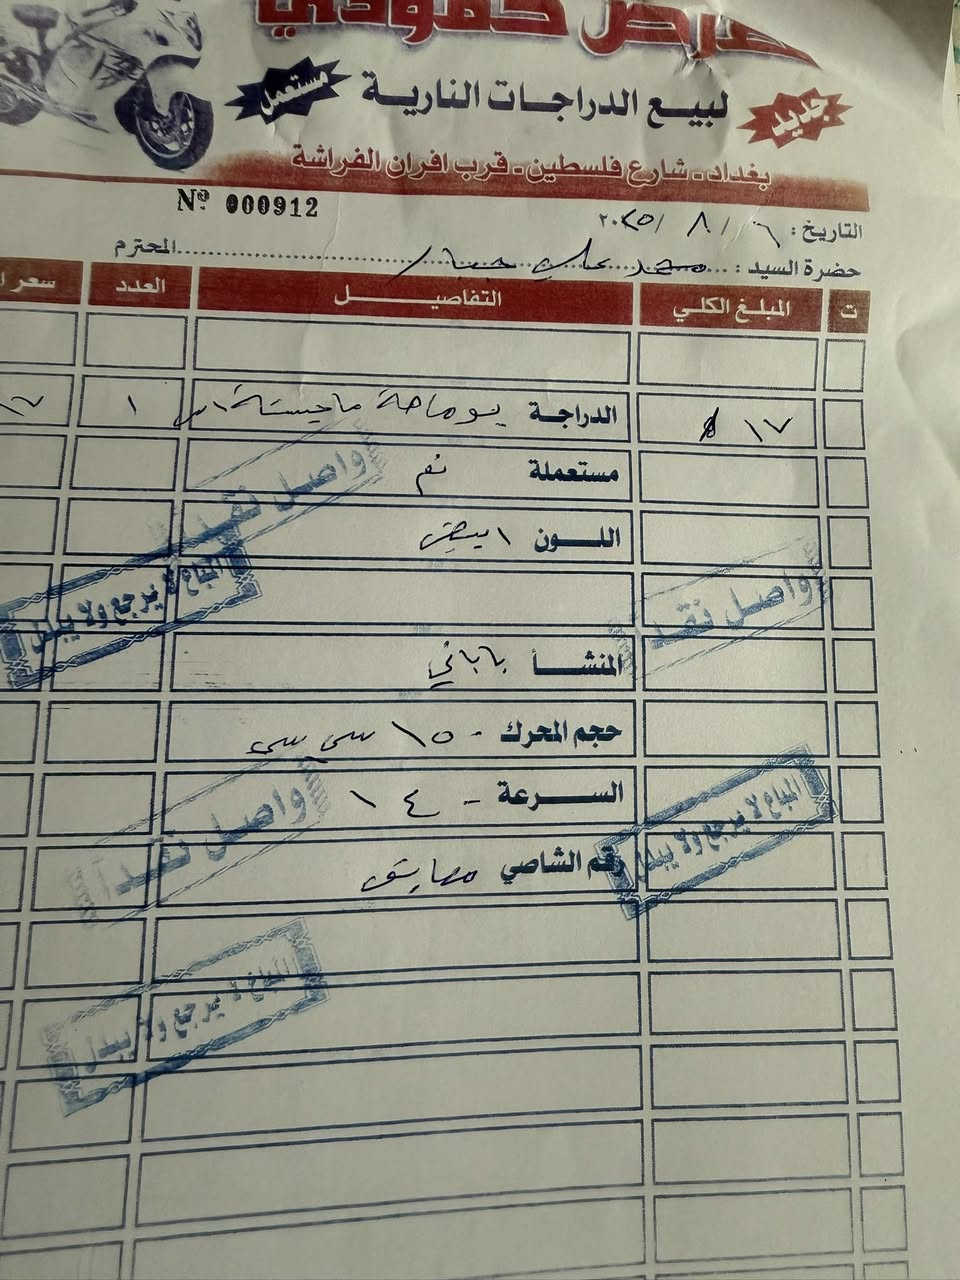 معرض حمودي
جديد لبيع الدراجات النارية مستعمل
بغداد - شارع فلسطين - قرب افران الفراشة
Nº 000912
التاريخ : ٦ / ٨ / ٢٠٢٥
حضرة السيد : محمد علي المحترم
ت المبلغ الكلي التفاصيل العدد سعر
١٧ $ الدراجة يوماهة ١ ١٧
مستعملة نعم
اللون ابيض
المنشأ ياباني
حجم المحرك ١٥٠ سي سي
السرعة ١٤٠
رقم الشاصي مطابق
واصل نقداً
المباع لا يرجع ولا يبدل
واصل نقداً
واصل نقداً
المباع لا يرجع ولا يبدل
المباع لا يرجع ولا يبدل